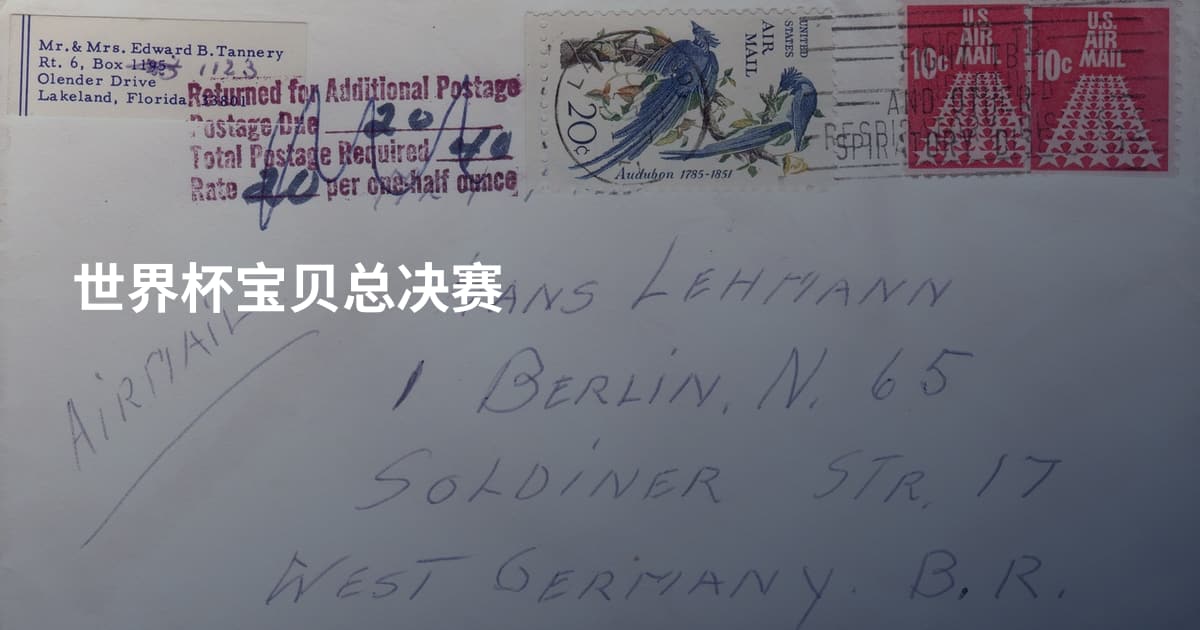 Mr. & Mrs. Edward B. Tannery
Rt. 6, Box 1195 1123
Olender Drive
Lakeland, Florida, 33801
Returned for Additional Postage
Postage Due 20
Total Postage Required 40
Rate 20 per one-half ounce
UNITED STATES
AIR MAIL
20c
Audubon 1785-1851
U.S. AIR MAIL
10c
U.S. AIR MAIL
10c
AND OTHER
RESPIRATORY
世界杯宝贝总决赛
AIRMAIL
HANS LEHMANN
1 BERLIN, N. 65
SOLDINER STR. 17
WEST GERMANY. B.R.